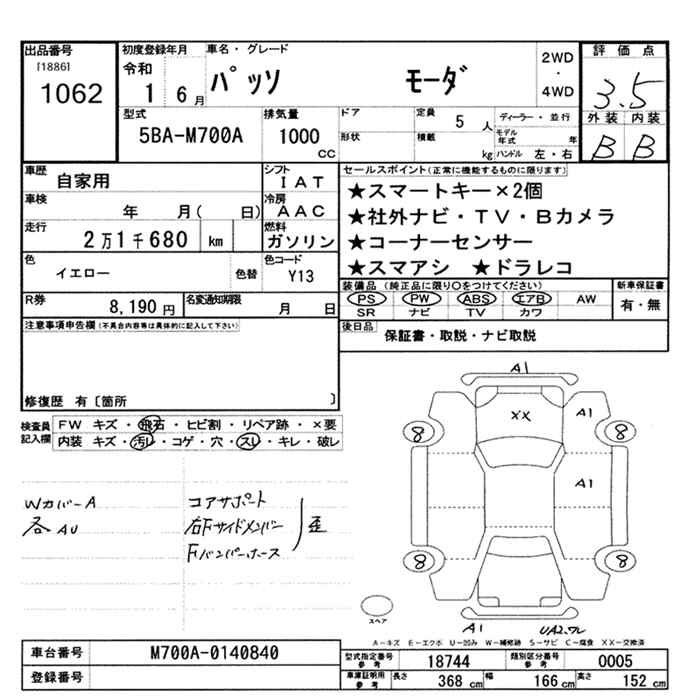 出品番号
[1886]
1062
初度登録年月
令和
1 6月
車名・グレード
パッソ モーダ
2WD
・
4WD
評価点
3.5
外装 内装
B B
型式
5BA-M700A
排気量
1000
CC
ドア
形状
定員
5人
積載
kg
ディーラー・並行
モデル年式 年
ハンドル 左・右
車歴
自家用
シフト
IAT
車検
年 月( 日)
冷房
AAC
走行
2万1千680 km
燃料
ガソリン
色
イエロー
色替
色コード
Y13
R券
8,190円
名変通知期限
月 日
セールスポイント(正常に機能するものに限ります)
★スマートキー×2個
★社外ナビ・TV・Bカメラ
★コーナーセンサー
★スマアシ ★ドラレコ
装備品(純正品に限り○をつけてください)
PS PW ABS エアB AW
SR ナビ TV カワ
新車保証書
有・無
後日品
保証書・取説・ナビ取説
注意事項申告欄(不具合内容等は具体的に記入して下さい)
修復歴 有〔箇所 〕
検査員
記入欄
FW キズ・飛石・ヒビ割・リペア跡・×要
内装 キズ・汚レ・コゲ・穴・スレ・キレ・破レ
Wカバー A
各AU
コアサポート
右Fサイドメンバー
Fバンパーホース
歪
A1
XX
A1
8
8
A1
8
8
スペア
A1
UA2.ワレ
A-キズ E-エクボ U-凹み W-補修跡 S-サビ C-腐食 XX-交換済
車台番号
M700A-0140840
登録番号
型式指定番号
参考
18744
類別区分番号
参考
0005
車庫証明用
参考
長さ
368 cm
幅
166 cm
高さ
152 cm